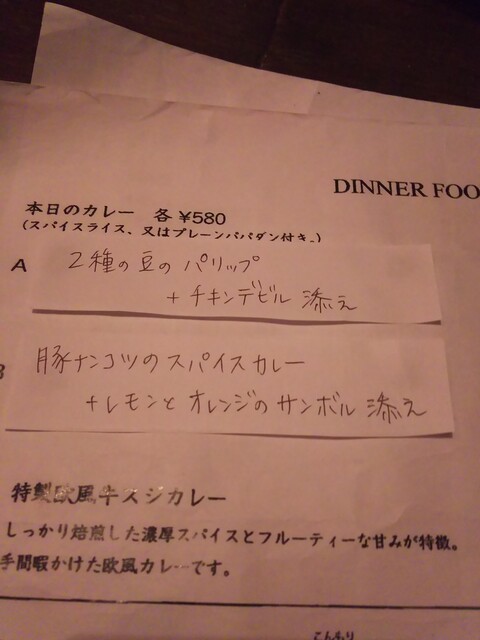 DINNER FOO
本日のカレー 各 ¥580
(スパイスライス、又はプレーンパパダン付き。)
A 2種の豆のパリップ
+ チキンデビル 添え
豚ナンコツのスパイスカレー
+レモンとオレンジのサンボル 添え
特製欧風牛スジカレー
しっかり焙煎した濃厚スパイスとフルーティーな甘みが特徴。
手間暇かけた欧風カレーです。